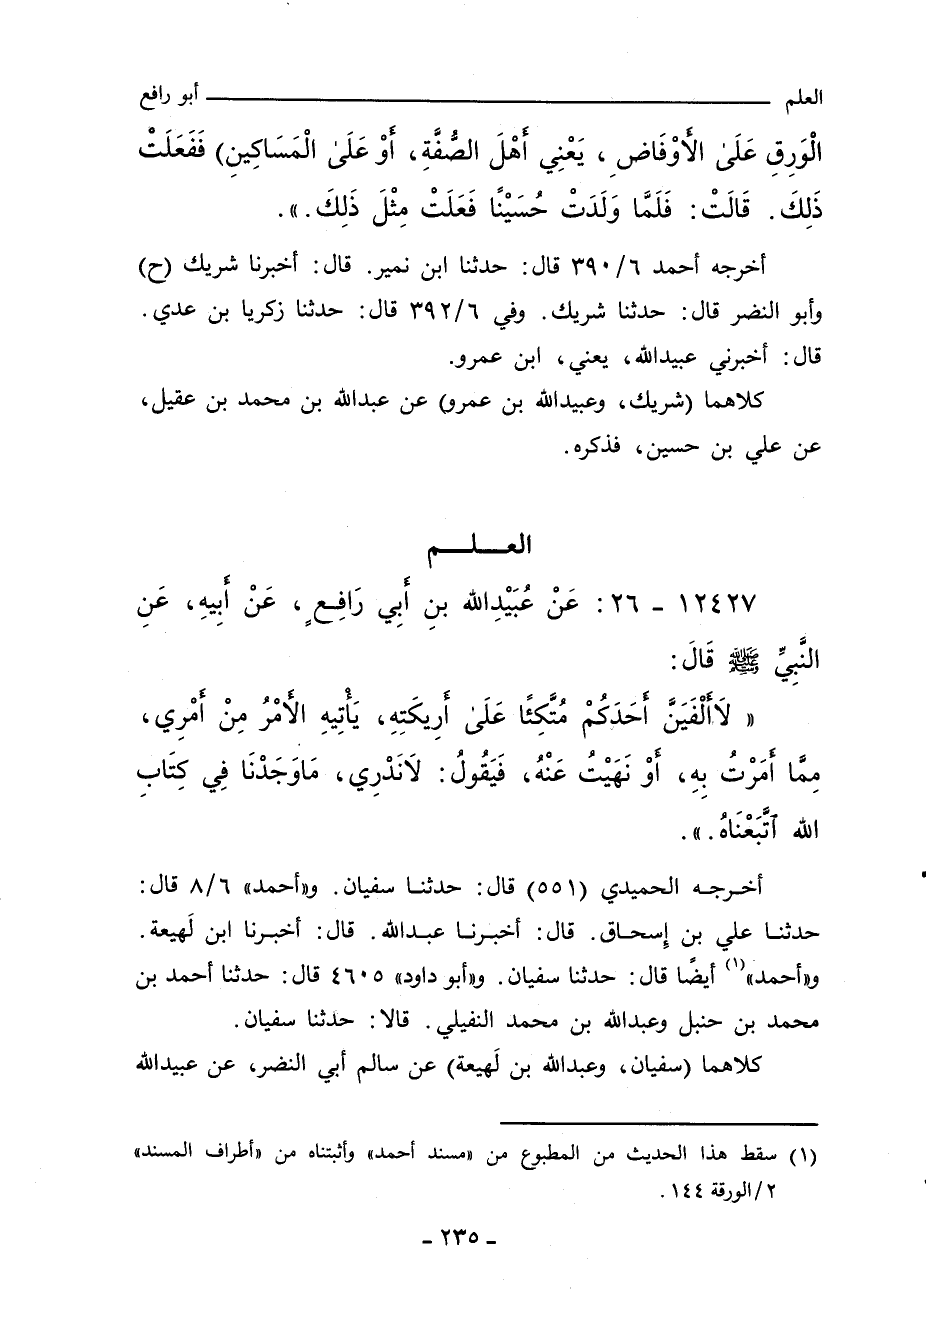 العلم أبو رافع
الْوَرِقِ عَلَىٰ الأَوْفَاضِ ، يَعْنِي أَهْلَ الصُّفَّةِ، أَوْ عَلَىٰ الْمَسَاكِينِ) فَفَعَلَتْ
ذَلِكَ. قَالَتْ: فَلَمَّا وَلَدَتْ حُسَيْنًا فَعَلَتْ مِثْلَ ذَلِكَ.».
أخرجه أحمد ٦/ ٣٩٠ قال: حدثنا ابن نمير. قال: أخبرنا شريك (ح)
وأبو النضر قال: حدثنا شريك. وفي ٦/ ٣٩٢ قال: حدثنا زكريا بن عدي.
قال: أخبرني عبيدالله، يعني، ابن عمرو.
كلاهما (شريك، وعبيدالله بن عمرو) عن عبدالله بن محمد بن عقيل،
عن علي بن حسين، فذكره.
العـــلـــم
١٢٤٢٧ - ٢٦: عَنْ عُبَيْدِالله بنِ أَبي رَافِعٍ، عَنْ أَبِيهِ، عَنِ
النَّبِيِّ ﷺ قَالَ:
« لَاأَلْفَيَنَّ أَحَدَكُمْ مُتَّكِئًا عَلَىٰ أَرِيكَتِهِ، يَأْتِيهِ الأَمْرُ مِنْ أَمْرِي،
مِمَّا أَمَرْتُ بِهِ، أَوْ نَهَيْتُ عَنْهُ، فَيَقُولُ: لَانَدْرِي، مَاوَجَدْنَا فِي كِتَابِ
الله ٱتَّبَعْنَاهُ.».
أخـرجـه الحميدي (٥٥١) قال: حدثنـا سفيان. و«أحمد» ٦/ ٨ قال:
حدثنـا علي بن إسحـاق. قال: أخبـرنـا عبـدالله. قال: أخبـرنا ابن لَهيعة.
و«أحمد»(١) أيضًا قال: حدثنا سفيان. و«أبو داود» ٤٦٠٥ قال: حدثنا أحمد بن
محمد بن حنبل وعبدالله بن محمد النفيلي. قالا: حدثنا سفيان.
كلاهما (سفيان، وعبدالله بن لَهيعة) عن سالم أبي النضر، عن عبيدالله
(١) سقط هذا الحديث من المطبوع من «مسند أحمد» وأثبتناه من «أطراف المسند»
٢/الورقة ١٤٤.
- ٢٣٥ -